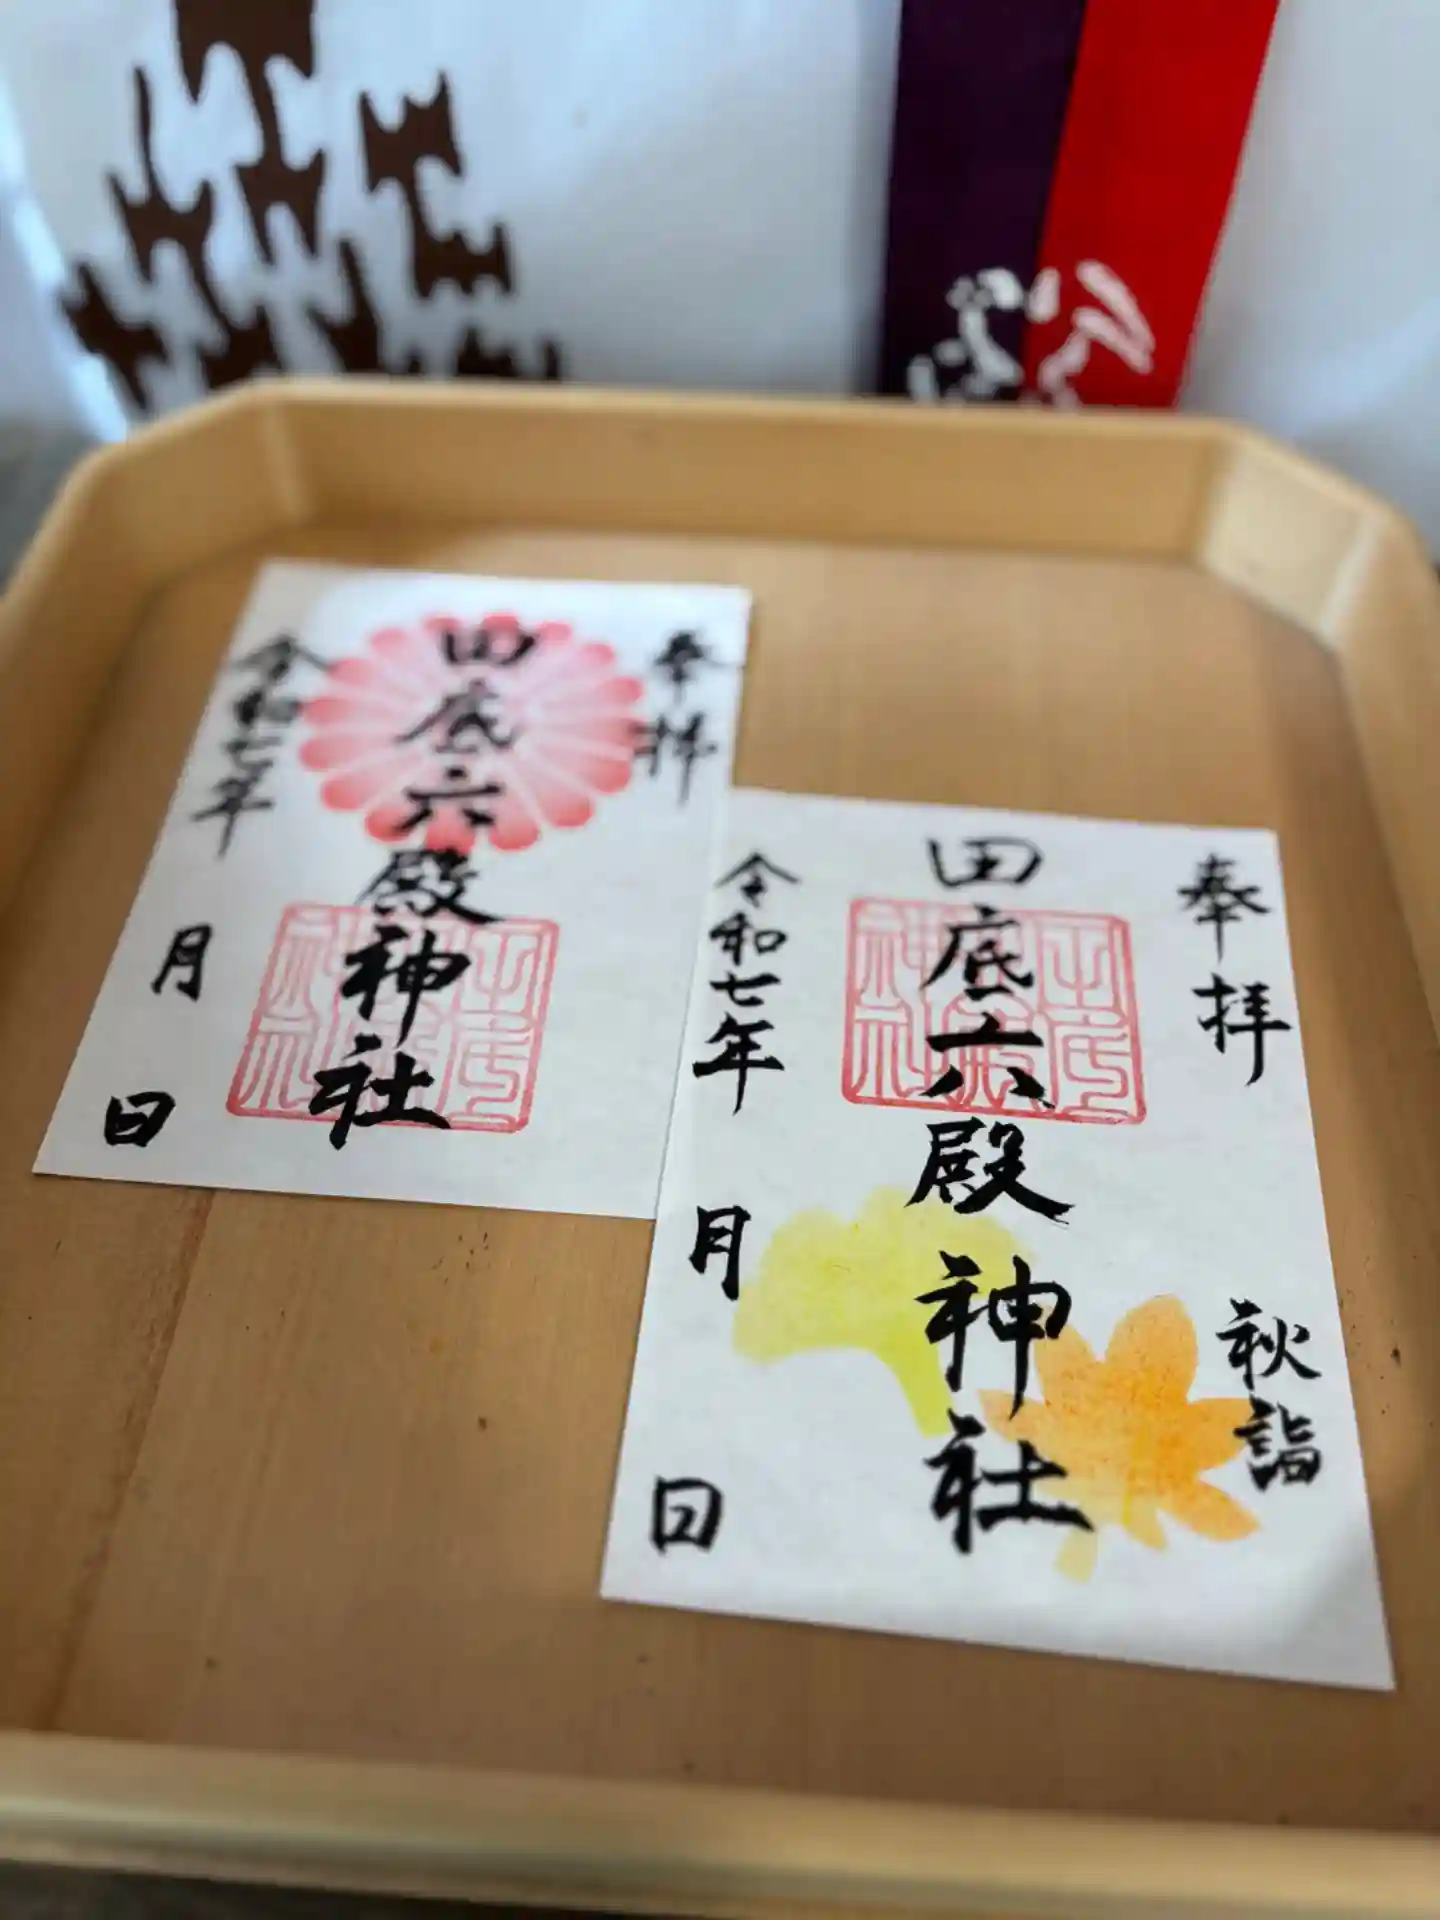 奉拝
田底六殿神社
令和七年
月
日
奉拝
秋詣
田底六殿神社
令和七年
月
日